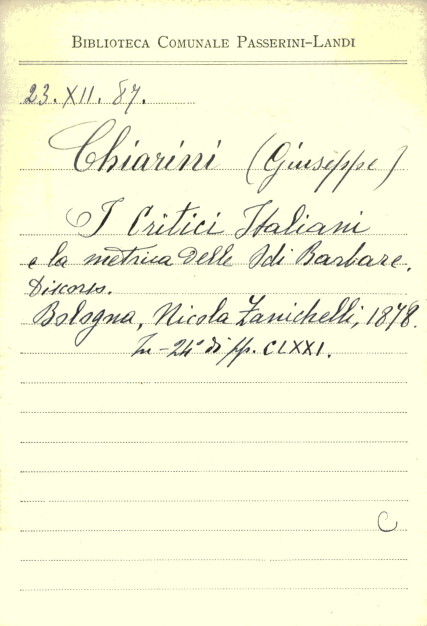 BIBLIOTECA COMUNALE PASSERINI-LANDI
23. XII. 87.
Chiarini (Giuseppe)
I Critici Italiani
e la metrica delle Odi Barbare.
Discorso.
Bologna, Nicola Zanichelli, 1878.
In-24° di pp. CLXXI.
C